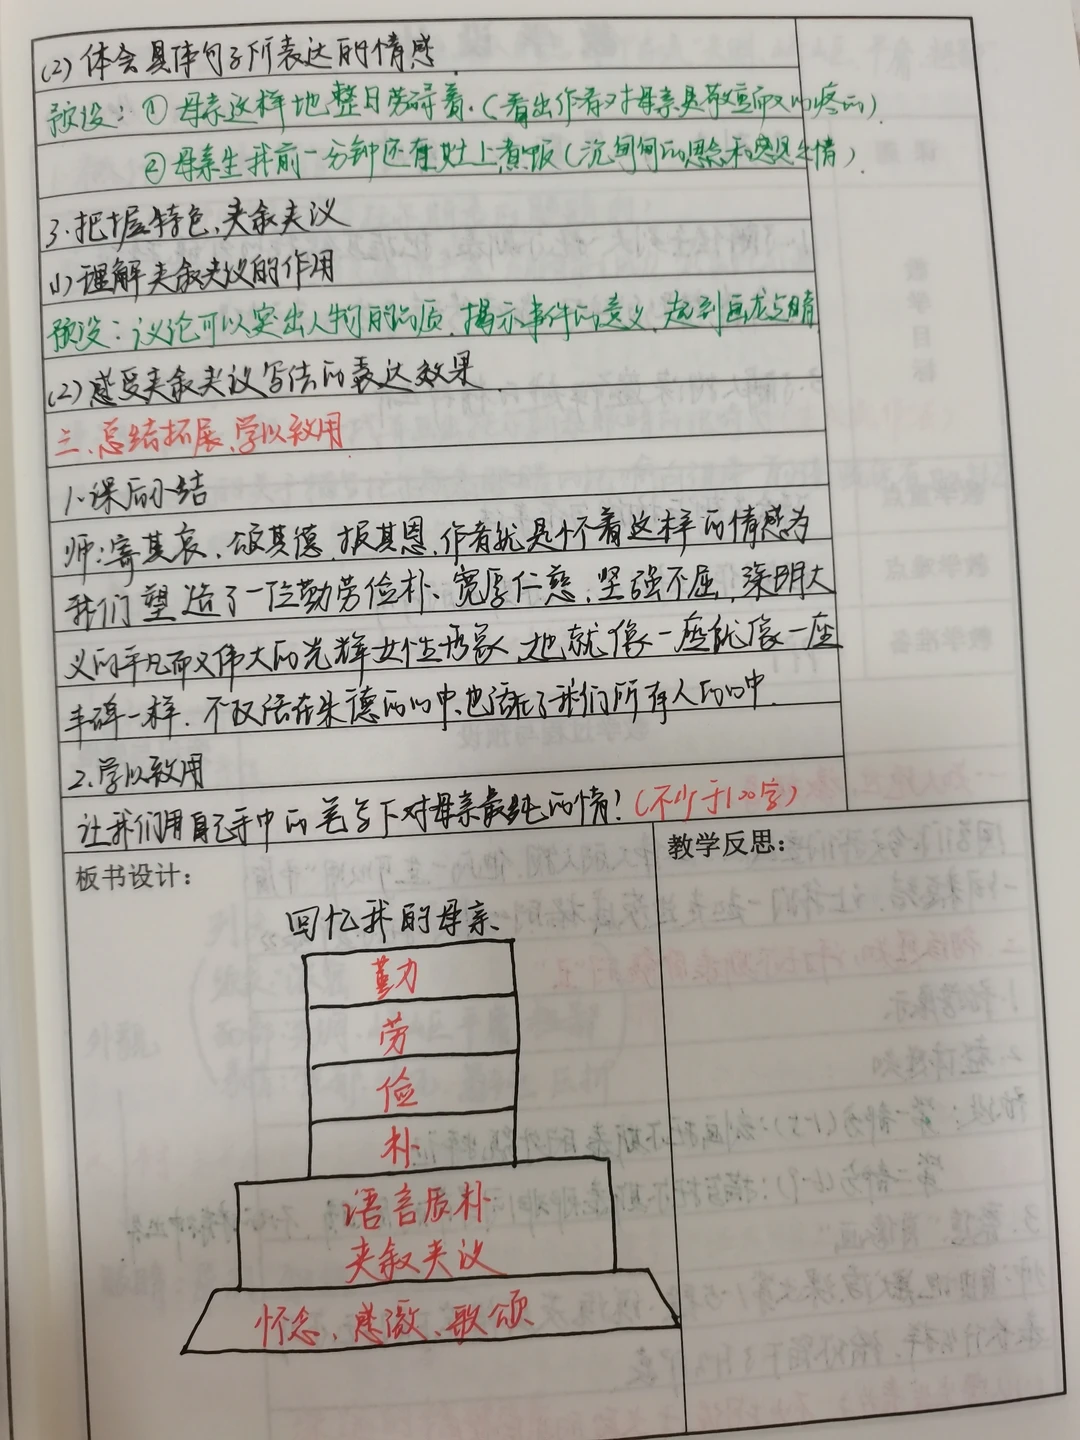 (2)体会具体句子所表达的情感.
预设:①母亲这样地整日劳碌着.(看出作者对母亲是敬重而又心疼的)
②母亲生我前一分钟还在灶上煮饭(沉甸甸的思念和感恩之情).
3.把握特色,夹叙夹议
(1)理解夹叙夹议的作用
预设:议论可以突出人物的品质,揭示事件的意义,起到画龙点睛
(2)感受夹叙夹议写法的表达效果.
三、总结拓展、学以致用
1.课后小结
师:寄其哀、颂其德、报其恩,作者就是怀着这样的情感为
我们塑造了一位勤劳俭朴、宽厚仁慈、坚强不屈,深明大
义的平凡而又伟大的光辉女性形象,她就像一座就像一座
丰碑一样.不仅活在朱德的心中,也活在了我们所有人的心中.
2.学以致用
让我们用自己手中的笔写下对母亲最纯的情!(不少于100字)
板书设计:
教学反思:
回忆我的母亲
勤
劳
俭
朴
语言质朴
夹叙夹议
怀念、感激、歌颂